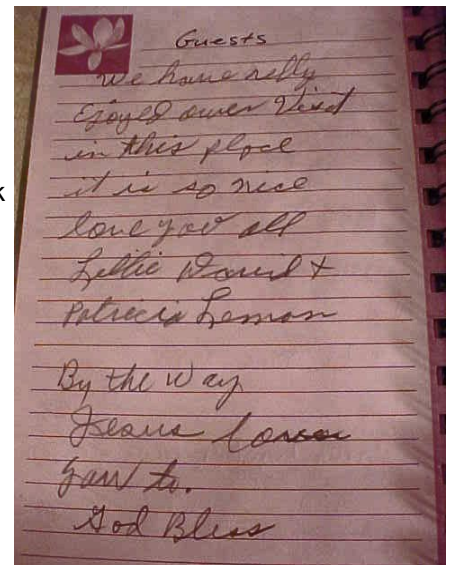 Guests
We have relly
Ejoyed ower Visit
in this place
it is so nice
love you all
Lettie David +
Patricia Lemon
By the Way
Jesus loves
you to.
God Bless
k